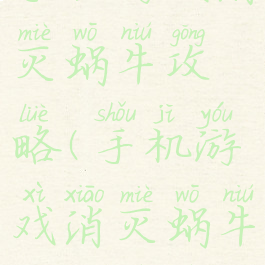 miè wō niú gōng
灭蜗牛攻
lüè shǒu jī yóu
略(手机游
xì xiāo miè wō niú
戏消灭蜗牛